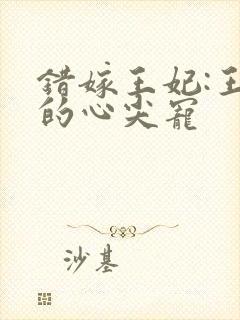 错嫁王妃:王
的心尖宠
沙基